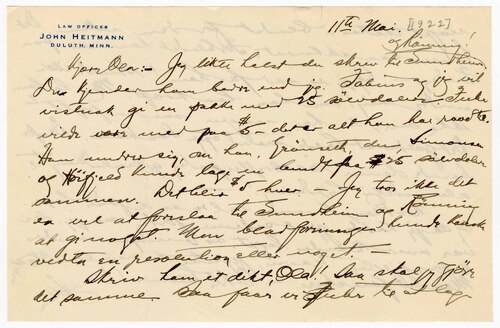 LAW OFFICES
JOHN HEITMANN
DULUTH, MINN.
11te Mai. [1922]
og Rönning!
Kjære Ola:- Jeg likte helst du skrev til Sundheim.
Du kjender ham bedre end jeg. Fabius og jeg vil
gi en pakke med 25 sölvdalere. Fuhr
vilde være med paa $5 - det er alt han har raad til.
Han undrer sig, om han, Grinseth, du, Simonsen
og kunde lage en bundt paa $25 sölvdaler
sammen. Det blir $5 hver - Jeg tror ikke det
er vel at foreslaa til Sundheim og Rönning
at gi noget. Men bladforeningen kunde kanske
vedta en resolution eller noget. -
Skriv ham et dikt, Ola! Saa skal jeg gjöre
det samme. Saa faar vi Fuhr til at lage